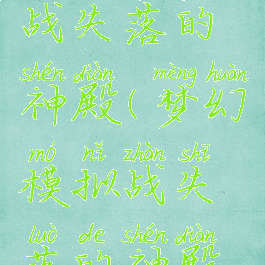 战失落的
shén diàn mèng huàn
神殿(梦幻
mó nǐ zhàn shī
模拟战失
luò de shén diàn
落的神殿